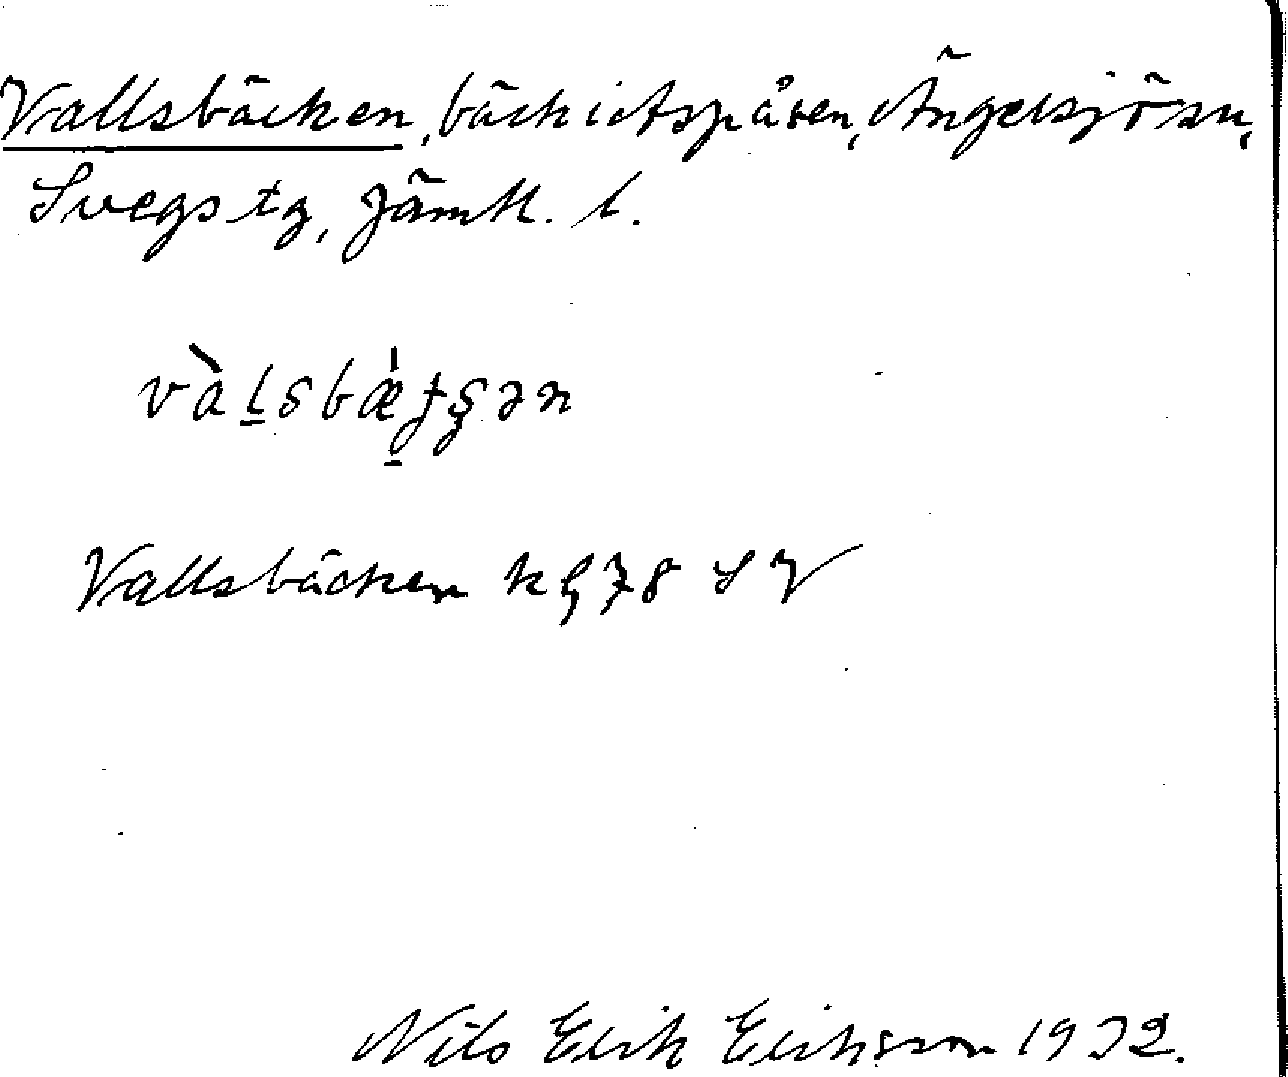 Vallsbäcken, bäck i Aspåsen, Ängersjösn,
Svegs tg, Jämtl. l.
vàḻsbæ̀ʈʂən
Vallsbäcken kg 78 SV
Nils Erik Eriksson 1932.